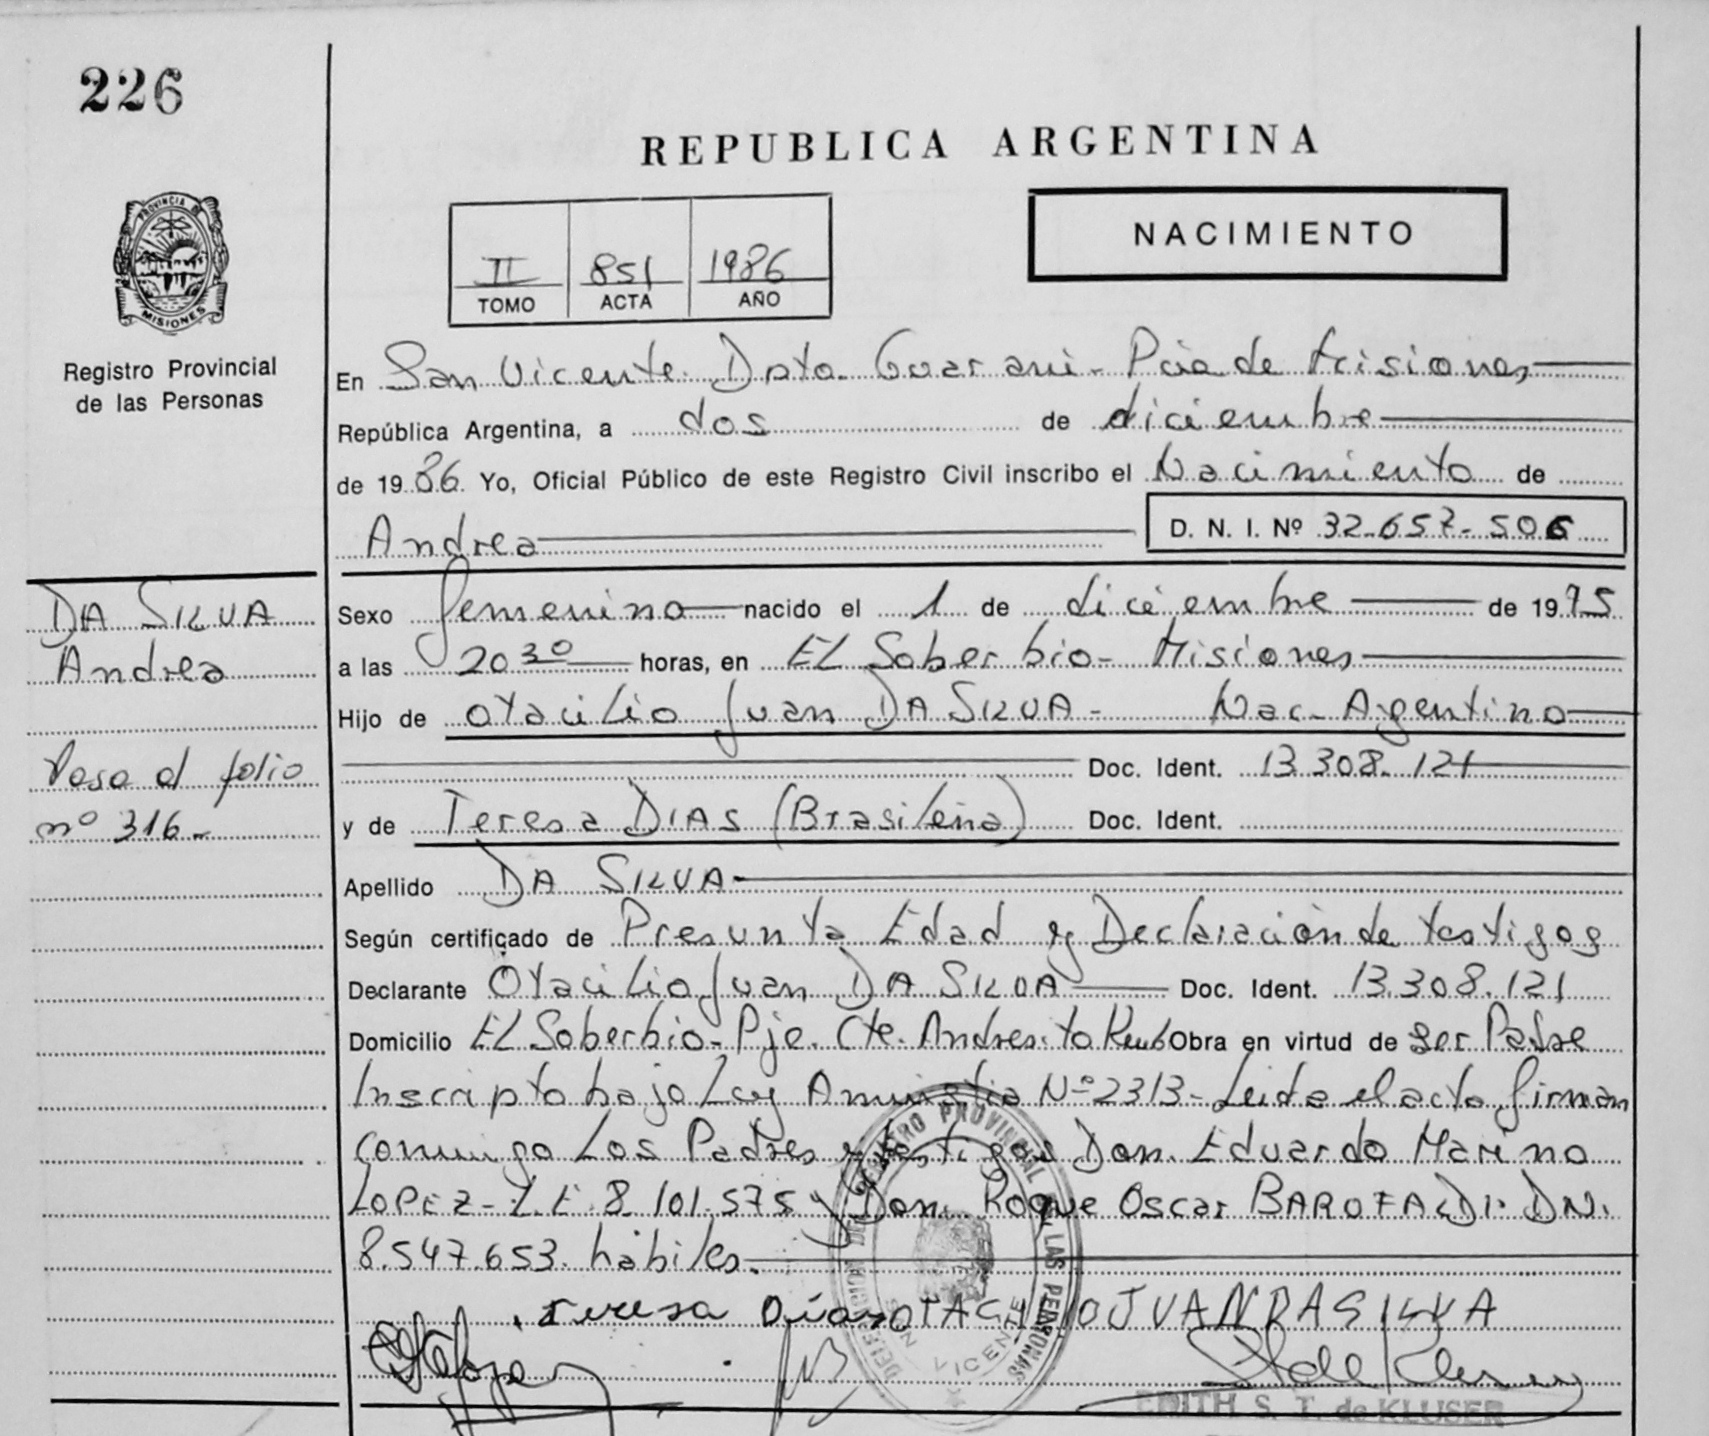 226
REPUBLICA ARGENTINA
NACIMIENTO
II 851 1986
TOMO ACTA AÑO
PROVINCIA DE
MISIONES
Registro Provincial
de las Personas
En San Vicente Dpto. Guarani - Pcia de Misiones
República Argentina, a dos de diciembre
de 1986 Yo, Oficial Público de este Registro Civil inscribo el Nacimiento de
Andrea D. N. I. Nº 32.657.506
DA SILVA
Andrea
Pasa al folio
nº 316-
Sexo femenino nacido el 1 de diciembre de 1975
a las 20 30 horas, en EL Soberbio - Misiones
Hijo de Otacilio Juan DA SILVA - Nac. Argentino
Doc. Ident. 13.308.121
y de Teresa DIAS (Brasileña) Doc. Ident.
Apellido DA SILVA
Según certificado de Presunta Edad y Declaración de testigos
Declarante Otacilio Juan DA SILVA Doc. Ident. 13.308.121
Domicilio EL Soberbio - Pje. Cte. Andresito Obra en virtud de ser Padre
Inscripto bajo Ley Amnistia Nº 2313 - Leida el acta firman
conmigo Los Padres y testigos Don Eduardo Marino
LOPEZ - L.E. 8.101.575 y Don Roque Oscar DN.
8.547.653. hábiles.
Teresa OTACILIO JUAN DA SILVA
REGISTRO PROVINCIAL DE LAS PERSONAS
SAN VICENTE
EDITH S. T. de KLUSER